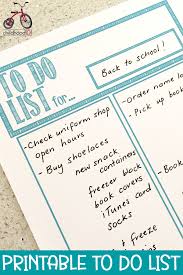 childhood101
TO DO
LIST for...
Back to school!
- Check uniform shop
open hours
- Buy shoelaces
new snack
containers
freezer block
book covers
iTunes card
socks
& freeze
- Order name l
- Pick up book
PRINTABLE TO DO LIST